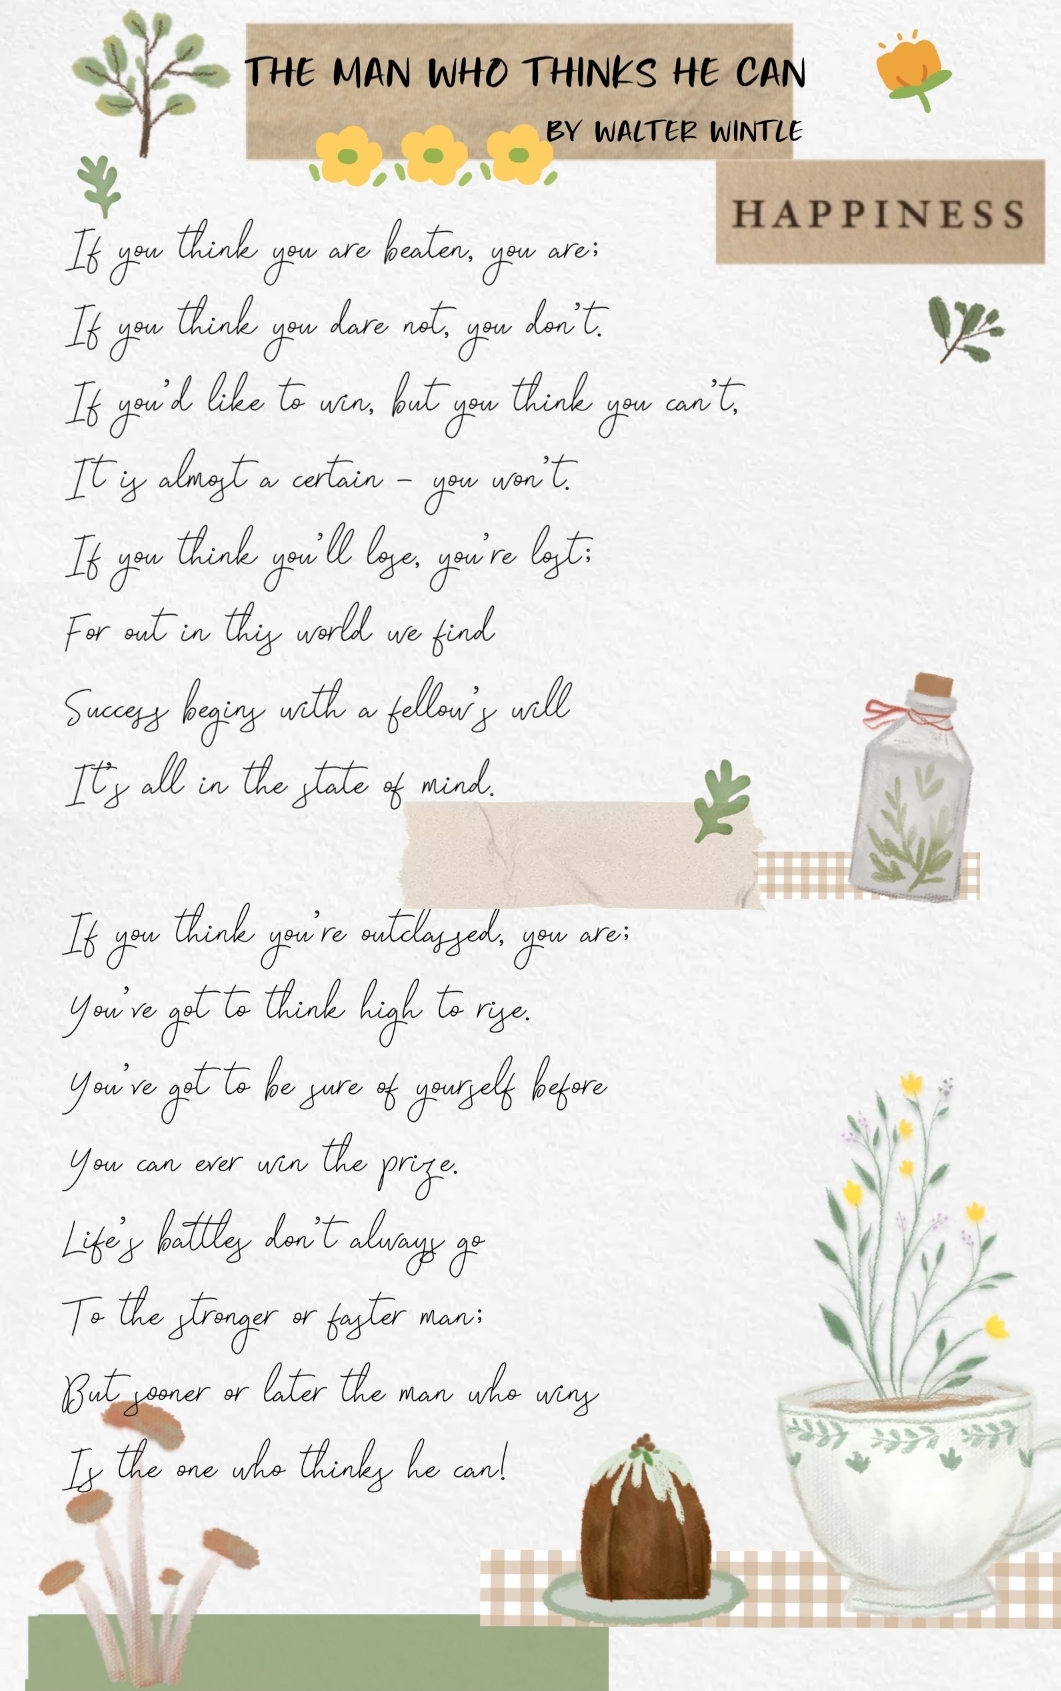 THE MAN WHO THINKS HE CAN
BY WALTER WINTLE
HAPPINESS
If you think you are beaten, you are;
If you think you dare not, you don't.
If you'd like to win, but you think you can't,
It is almost a certain – you won't.
If you think you'll lose, you're lost;
For out in this world we find
Success begins with a fellow's will
It's all in the state of mind.
If you think you're outclassed, you are;
You've got to think high to rise.
You've got to be sure of yourself before
You can ever win the prize.
Life's battles don't always go
To the stronger or faster man;
But sooner or later the man who wins
Is the one who thinks he can!